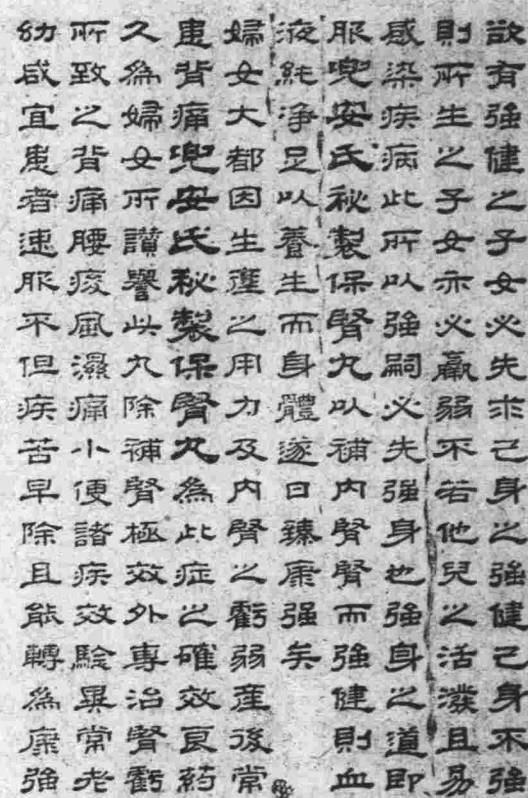 欲有強健之子女必先求己身之強健己身不強
則所生之子女亦必羸弱不若他兒之活潑且易
感染疾病此所以強嗣必先強身也強身之道即
服兜安氏秘製保腎丸以補內腎腎而強健則血
液純淨足以養生而身體遂日臻康强矣
婦女大都因生產之用力及內腎之虧弱産後常
患背痛兜安氏秘製保腎丸為此症之確效良药
久為婦女所讚譽此丸除補腎極效外專治腎虧
所致之背痛腰痠風濕痛小便諸疾效驗異常老
幼咸宜患者速服不但疾苦早除且能轉為康強